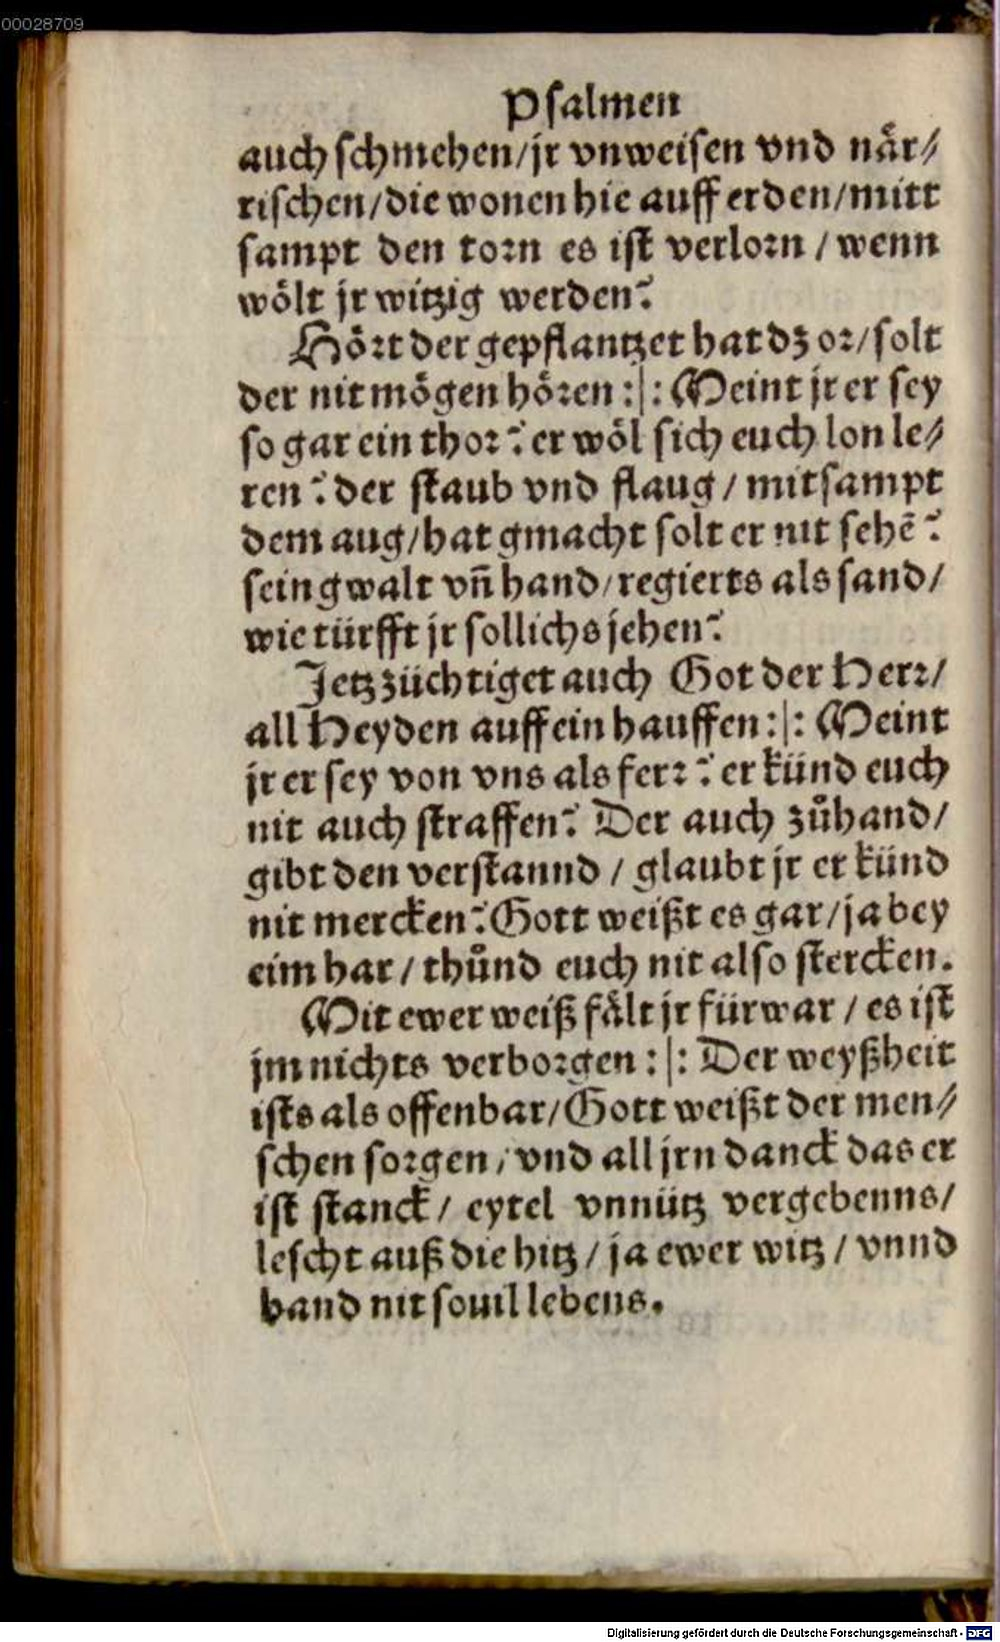 00028709
Psalmen
auch schmehen/jr vnweisen vnd når⸗
rischen/die wonen hie auff erden/mitt
sampt den torn es ist verlorn / wenn
wölt jr witzig werden?
Hört der gepflantzet hat dz or/solt
der nit mögen hören :|: Meint jr er sey
so gar ein thor? er wöl sich euch lon le⸗
ren? der staub vnd flaug / mitsampt
dem aug/hat gmacht solt er nit sehẽ?
sein gwalt vñ hand/regierts als sand/
wie türfft jr sollichs jehen?
Jetz züchtiget auch Got der Herr/
all Heyden auff ein hauffen :|: Meint
jr er sey von vns als ferr? er künd euch
nit auch straffen? Der auch zůhand/
gibt den verstannd / glaubt jr er künd
nit mercken? Gott weißt es gar/ja bey
eim har / thůnd euch nit also stercken.
Mit ewer weiß fålt jr fürwar / es ist
jm nichts verborgen :|: Der weyßheit
ists als offenbar/Gott weißt der men⸗
schen sorgen/vnd all jrn danck das er
ist stanck / eytel vnnütz vergebenns/
lescht auß die hitz / ja ewer witz / vnnd
hand nit souil lebens.
Digitalisierung gefördert durch die Deutsche Forschungsgemeinschaft - DFG